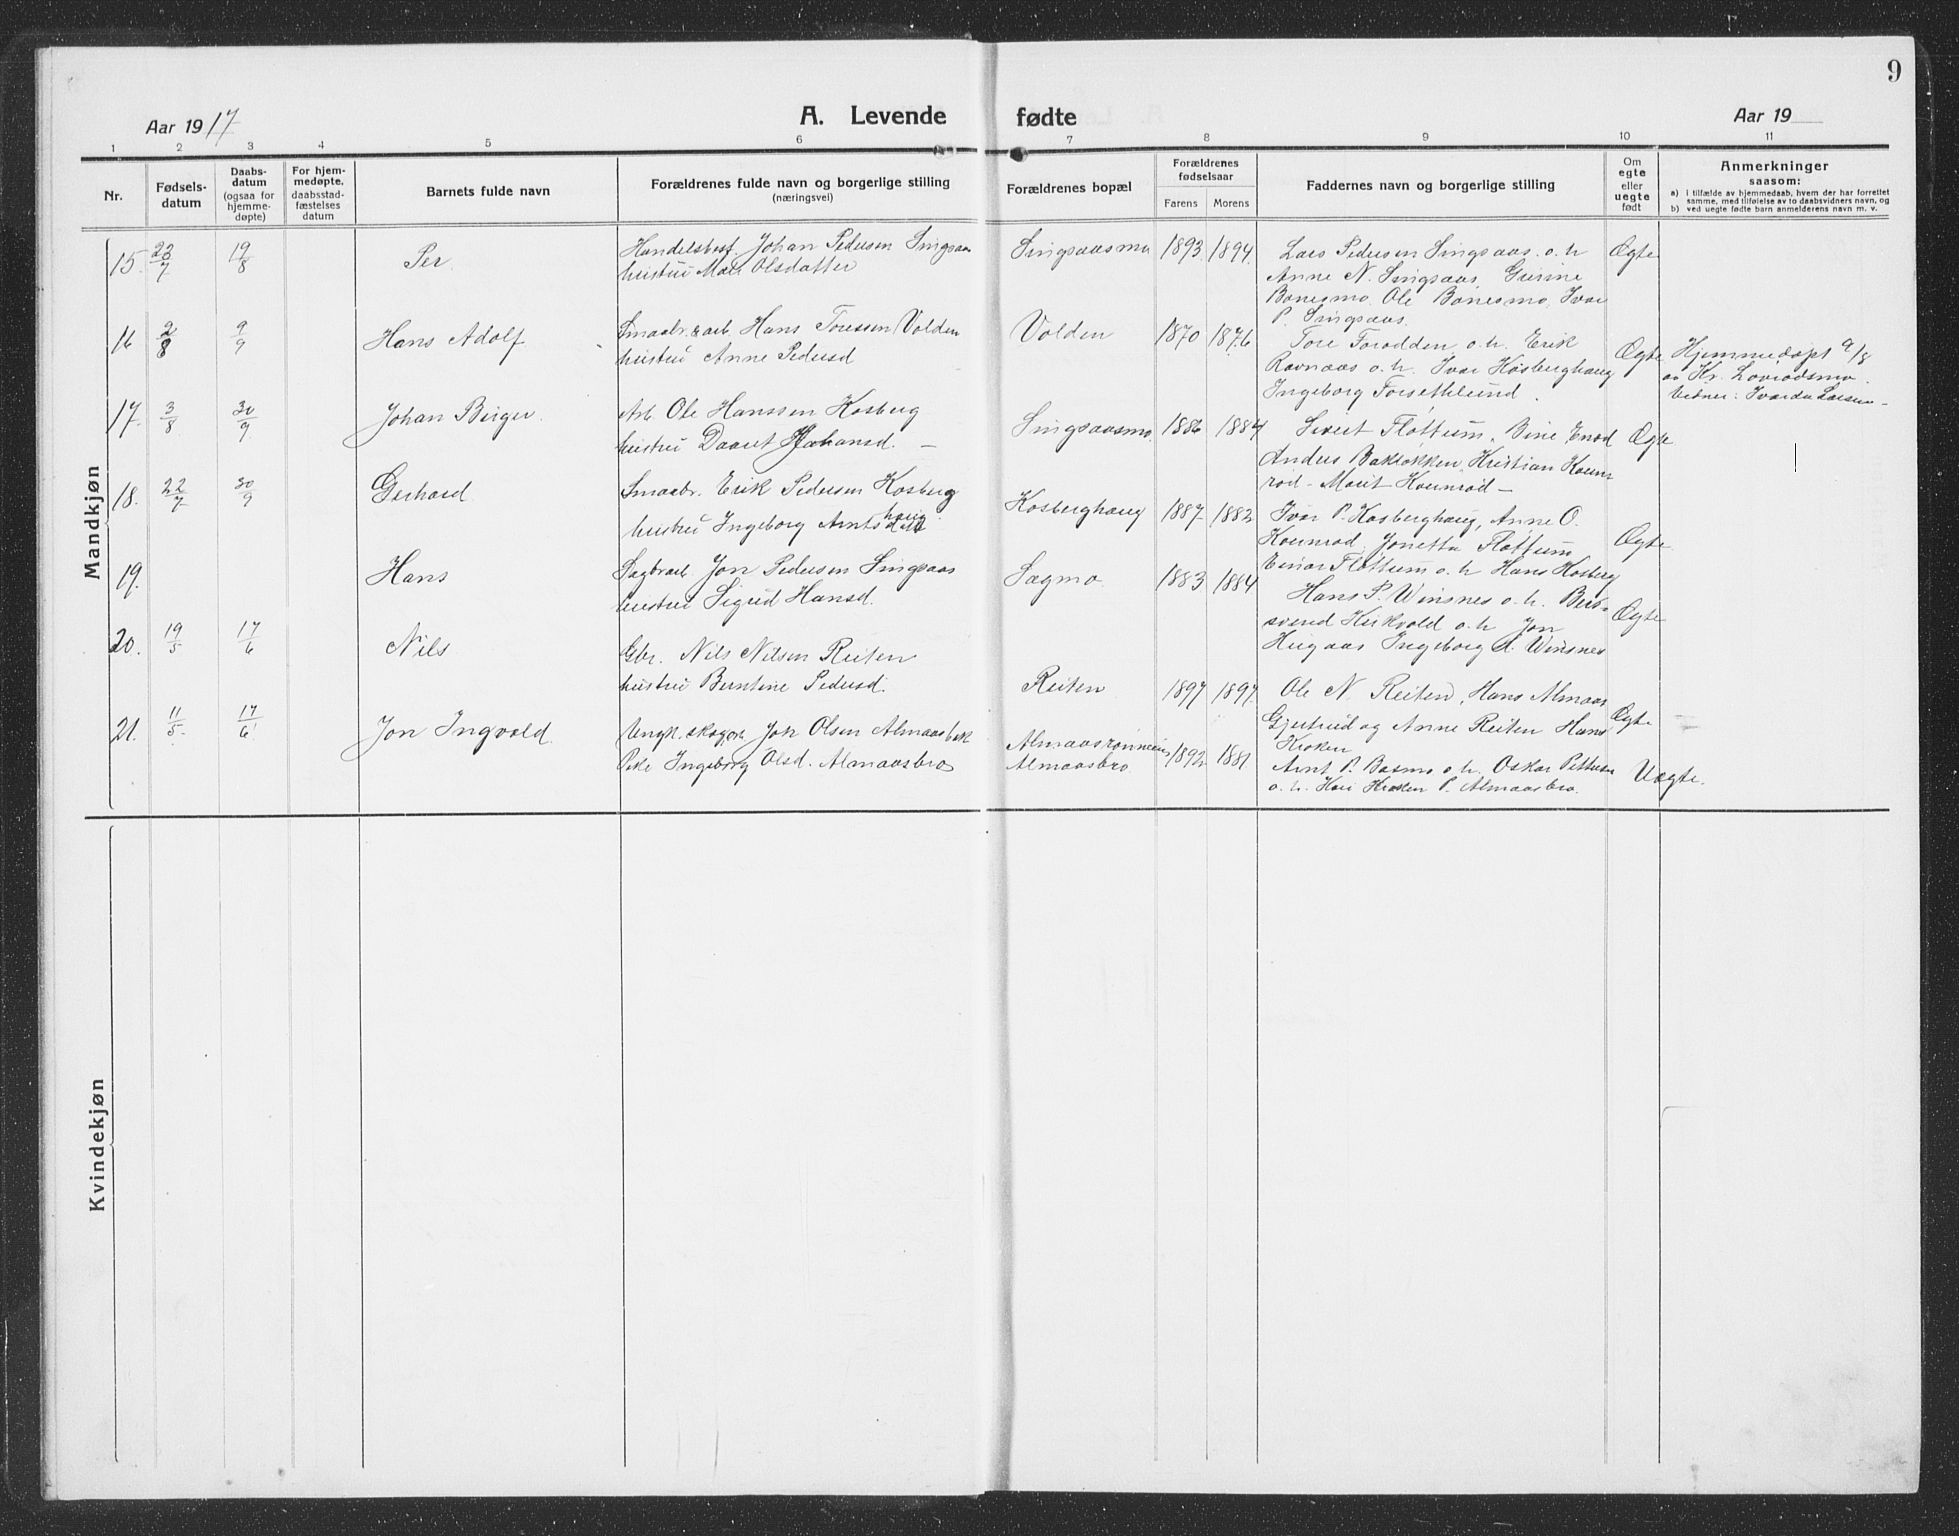 9
Aar 1917 A. Levende fødte Aar 19
1 2 3 4 5 6 7 8 9 10 11
Nr.
Fødsels-
datum
Daabs-
datum
(ogsaa for
hjemme-
døpte)
For hjem-
medøpte,
daabsstad-
fæstelses
datum
Barnets fulde navn
Forældrenes fulde navn og borgerlige stilling
(næringsvei)
Forældrenes bopæl
Forældrenes
fødselsaar
Farens Morens
Faddernes navn og borgerlige stilling
Om
egte
eller
uegte
født
Anmerkninger
saasom:
a) i tilfælde av hjemmedaab, hvem der har forrettet
samme, med tilføielse av to daabsvidners navn, og
b) ved uegte fødte barn anmelderens navn m. v.
Mandkjøn
15. 23/7 19/8 Per.
Handelsbest. Johan Pedersen Singsaas
hustru Mali Olsdatter
Singsaasmo 1893 1894
Lars Pedersen Singsaas o. h
Anne N. Singsaas, Gurine
Bonesmo, Ole Bonesmo, Ivar
P. Singsaas.
Ægte
16 2/8 9/9 Hans Adolf
Smaabr. & arb. Hans Toressen Volden
hustru Anne Pedersd
Volden 1870 1876
Tore Forodden o. h. Erik
Ravnaas o. h. Ivar Kosberghaug
Ingeborg Forsethlund.
Ægte
Hjemmedøpt 9/8
av Kr.
Vidner:
17. 3/8 30/9 Johan Birger.
Arb. Ole Hanssen Kosberg
hustru Daaret Johansd. –
Singsaasmo 1886 1884
Sivert Fløttum, Bine Enod
Anders Bakløkken, Kristian Kounn
rod – Marit Kounrod –
Ægte
18. 22/7 30/9 Gerhard
Smaabr. Erik Pedersen Kosberg
haug.
hustru Ingeborg Arntsdatt
Kosberghaug 1887 1882
Ivar P. Kosberghaug, Anne O.
Kounrod, Jonetta Fløttum
Einar Fløttum o. h Hans Kosberg
Ægte
19. Hans
Sagbrarb. Jon Pedersen Singsaas
hustru Sigrid Hansd.
Sagmo. 1883 1884
Hans P. Winsnes o. h. Ber-
svend Kirkvold o. h Jon
Hugaas Ingeborg A. Winsnes
Ægte
20. 19/5 17/6 Nils
Gbr. Nils Nilsen Reiten
hustru Berntine Pedersd.
Reiten 1897 1897
Ole N. Reiten, Hans Almaas
Gjertrud og Anne Reiten Hans
Kroken
Ægte –
21. 11/5 17/6 Jon Ingvald
Ungk. skogarb. Jon Olsen Almaasbak
Pike Ingeborg Olsd. Almaasbro
Almaasrønningen
Almaasbro 1892 1881
Arnt P. Basmo o. h. Oskar Pettersen
o. h. Kari Kroken P. Almaasbro.
Uægte.
Kvindekjøn